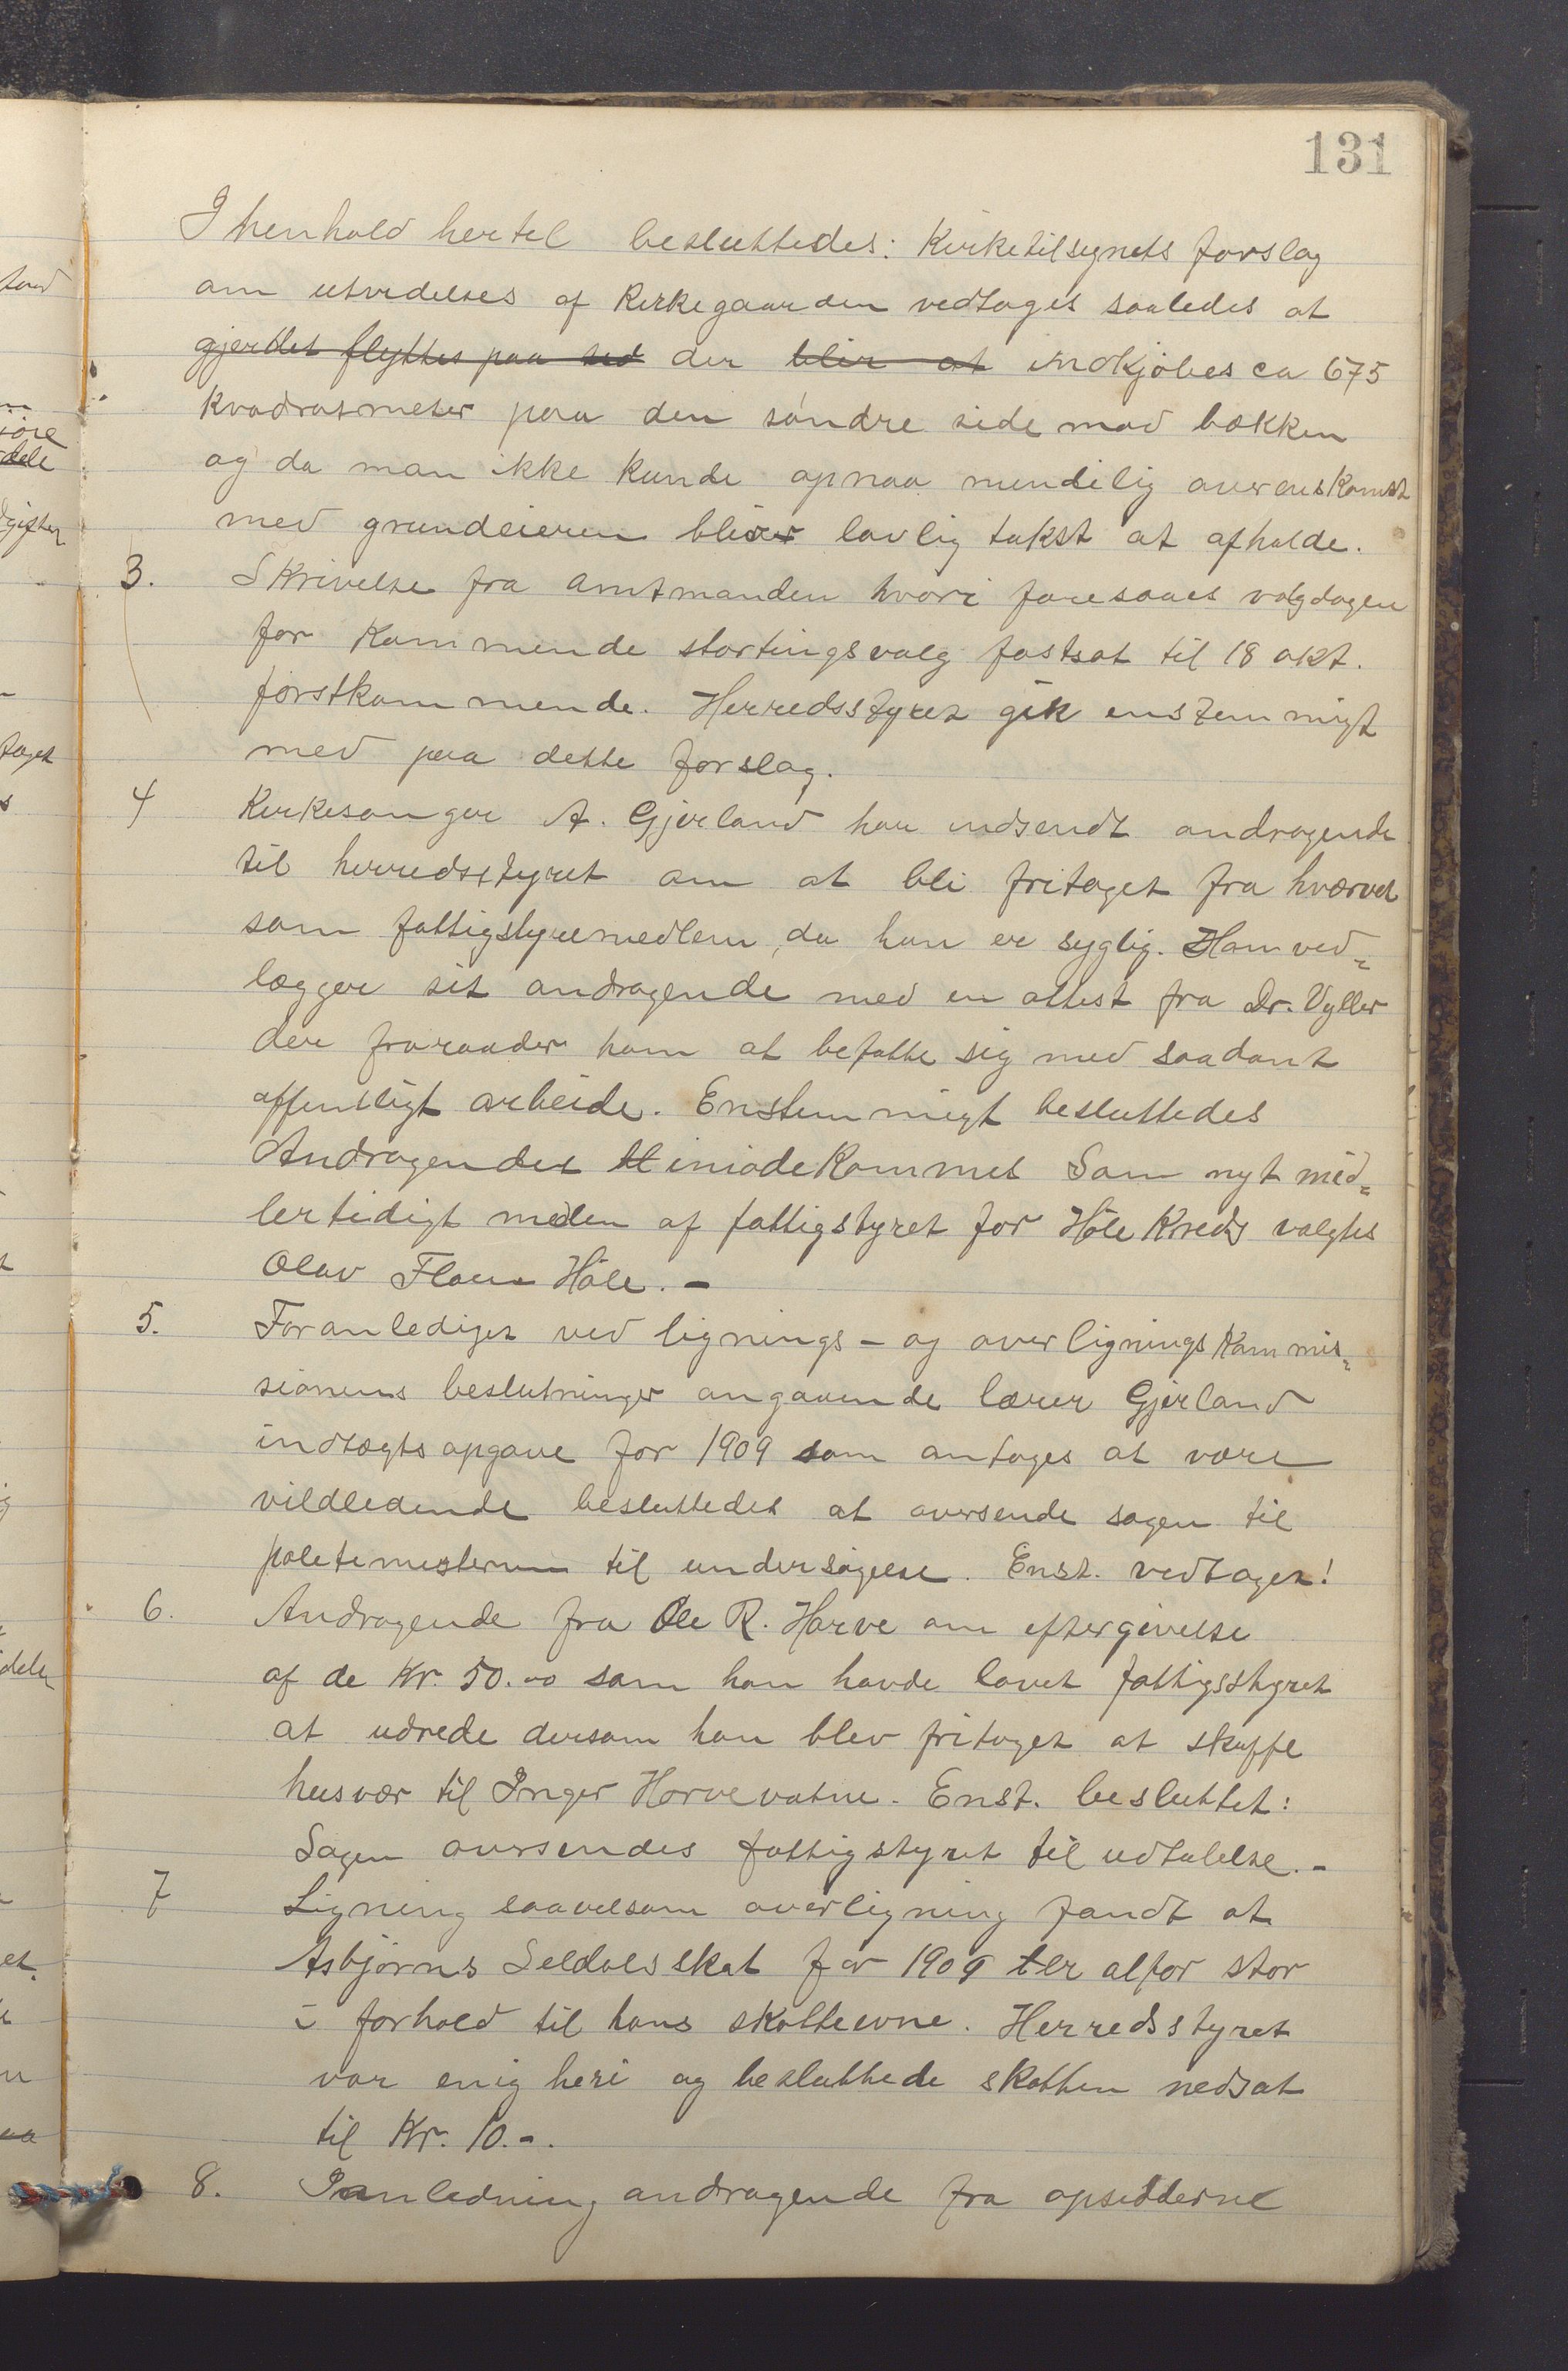 131
I henhold hertil besluttedes: Kirketilsynets forslag
om utvidelses af Kirkegaarden vedtages saaledes at
gjerdet flyttes paa sed der blir at indkjøbes ca 675
kvadratmeter paa den søndre side mod bækken
og da man ikke kunde opnaa mundtlig overenskomst
med grundeieren bliver lovlig takst at afholde.
3. Skrivelse fra amtmanden hvori foresaaes valgdagen
for kommende stortingsvalg fastsat til 18 okt.
førstkommende. Herredsstyret gik enstemmigt
med paa dette forslag.
4 Kirkesanger A. Gjerland har indsendt andragende
til herredsstyret om at bli fritaget fra hværvet
som fattigstyremedlem, da han er syglig. Han ved=
lægger sit andragende med en attest fra Dr. Vyller
der fraraader ham at befatte sig med saadant
offentligt arbeide. Enstemmigt besluttedes
Andragendet imødekommet Som nyt mid=
lertidigt medlem af fattigstyret for Høle Kreds valgtes
Olav Høle. -
5. Foranlediget ved lignings - og overligningskommis=
sionens beslutninger angaaende lærer Gjerland
indtægtsopgave for 1909 som antages at være
vildledende besluttedes at oversende sagen til
politimesteren til undersøgelse. Enst. vedtaget!
6. Andragende fra Ole R. Harve om eftergivelse
af de Kr. 50.00 som han havde lovet fattigsstyret
at udrede dersom han blev fritaget at skaffe
husvær til Inger Horvevatne. Enst. besluttet:
Sagen oversendes fattigstyret til udtalelse. -
7 Ligning saavelsom overligning fandt at
Asbjørns Seldals skat for 1909 er altfor stor
i forhold til hans skatteevne. Herredsstyret
var enig heri og besluttede skatten nedsat
til Kr. 10.-.
8. I anledning andragende fra opsidderne